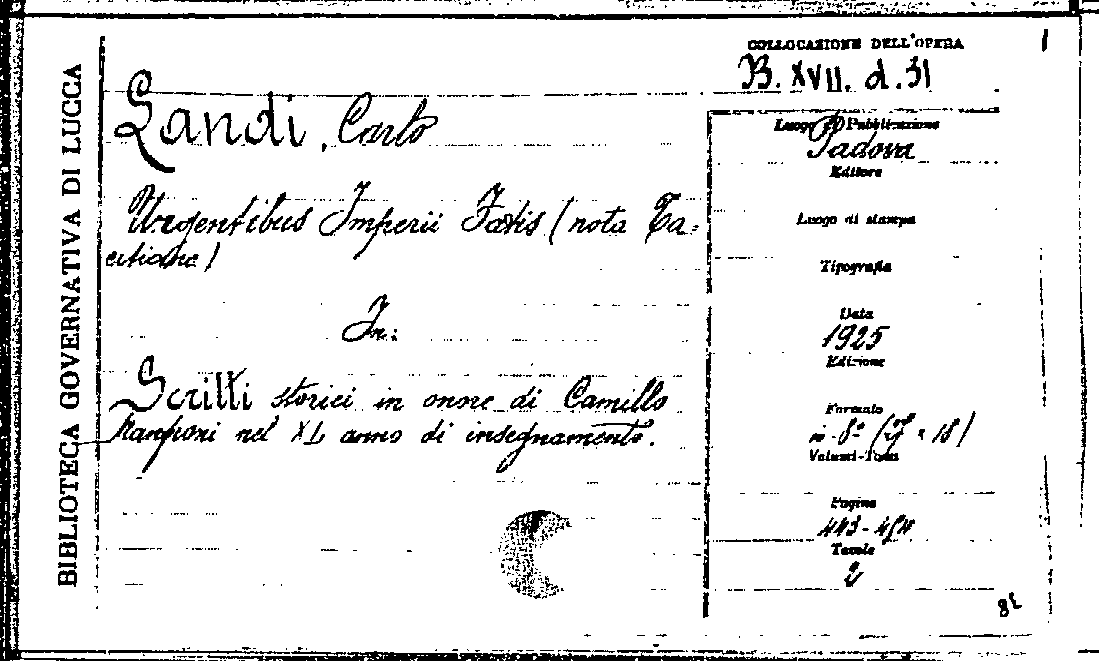 BIBLIOTECA GOVERNATIVA DI LUCCA
COLLOCAZIONE DELL'OPERA
B. XVII. d. 31
1
Landi, Carlo
Urgentibus Imperii Fatis (nota Ta=
citiane)
In:
Scritti storici in onore di Camillo
Manfroni nel XL anno di insegnamento.
Luogo di Pubblicazione
Padova
Editore
Luogo di stampa
Tipografia
Data
1925
Edizione
Formato
in-8º × 18)
Volumi-Tomi
Pagine
443-454
Tavole
2